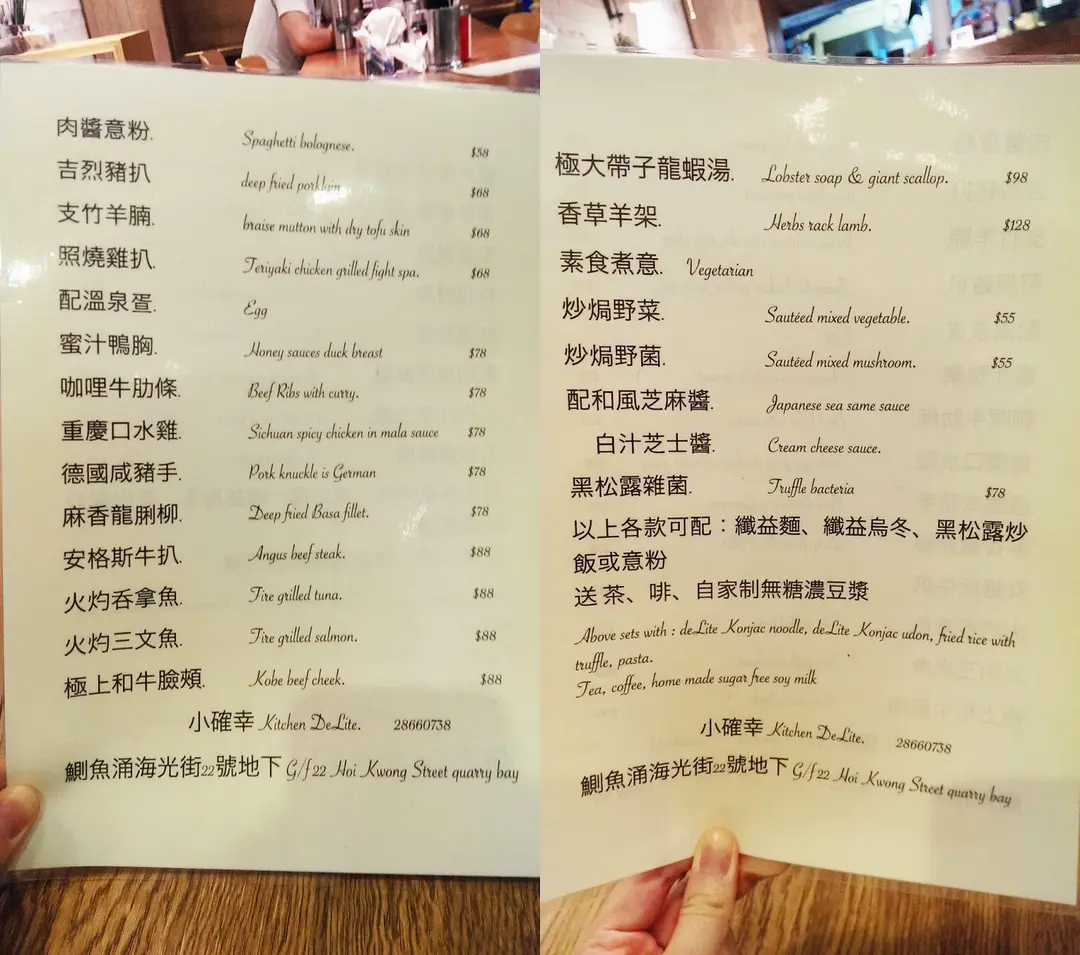 肉醬意粉. Spaghetti bolognese. $58
吉烈豬扒 deep fried pork $68
支竹羊腩 braise mutton with dry tofu skin $68
照燒雞扒. Teriyaki chicken grilled fight spa. $68
配溫泉蛋. Egg
蜜汁鴨胸. Honey sauces duck breast $78
咖哩牛肋條. Beef Ribs with curry. $78
重慶口水雞. Sichuan spicy chicken in mala sauce $78
德國咸豬手. Pork knuckle is German $78
麻香龍脷柳. Deep fried Basa fillet. $78
安格斯牛扒. Angus beef steak. $88
火灼吞拿魚. Fire grilled tuna. $88
火灼三文魚. Fire grilled salmon. $88
極上和牛臉頰. Kobe beef cheek. $88
小確幸 Kitchen DeLite. 28660738
鰂魚涌海光街22號地下 G/f 22 Hoi Kwong Street quarry bay
極大帶子龍蝦湯. Lobster soap & giant scallop. $98
香草羊架. Herbs rack lamb. $128
素食煮意. Vegetarian
炒焗野菜. Sautéed mixed vegetable. $55
炒焗野菌. Sautéed mixed mushroom. $55
配和風芝麻醬. Japanese sea same sauce
白汁芝士醬. Cream cheese sauce.
黑松露雜菌. Truffle bacteria $78
以上各款可配：纖益麵、纖益烏冬、黑松露炒
飯或意粉
送 茶、啡、自家制無糖濃豆漿
Above sets with : deLite Konjac noodle, deLite Konjac udon, fried rice with
truffle, pasta.
Tea, coffee, home made sugar free soy milk
小確幸 Kitchen DeLite. 28660738
鰂魚涌海光街22號地下 G/f 22 Hoi Kwong Street quarry bay